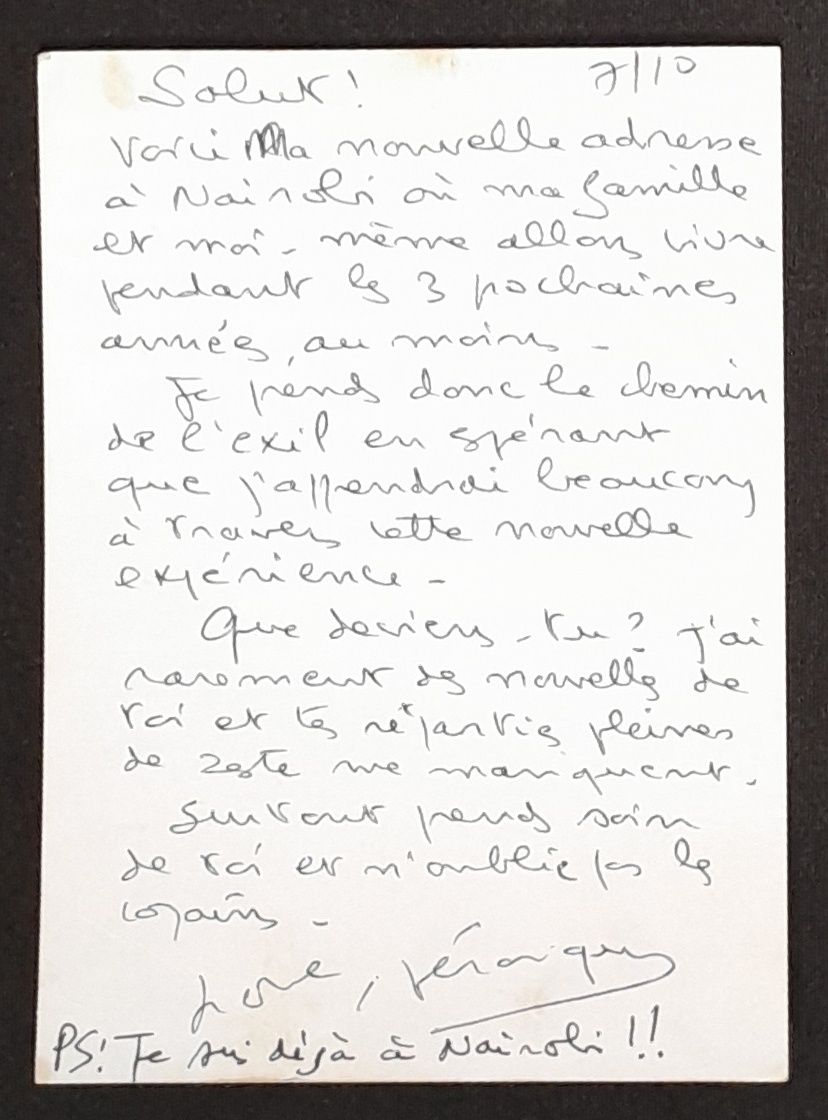 Salut ! 7/10
Voici Ma nouvelle adresse
à Nairobi où ma famille
et moi-même allons vivre
pendant les 3 prochaines
années, au moins -
Je prends donc le chemin
de l'exil en espérant
que j'apprendrai beaucoup
à travers cette nouvelle
expérience -
Que deviens-tu ? J'ai
rarement des nouvelles de
toi et tes réparties pleines
de zeste me manquent.
Surtout prends soin
de toi et n'oublie pas les
copains -
Love, Véronique
PS: Je suis déjà à Nairobi !!